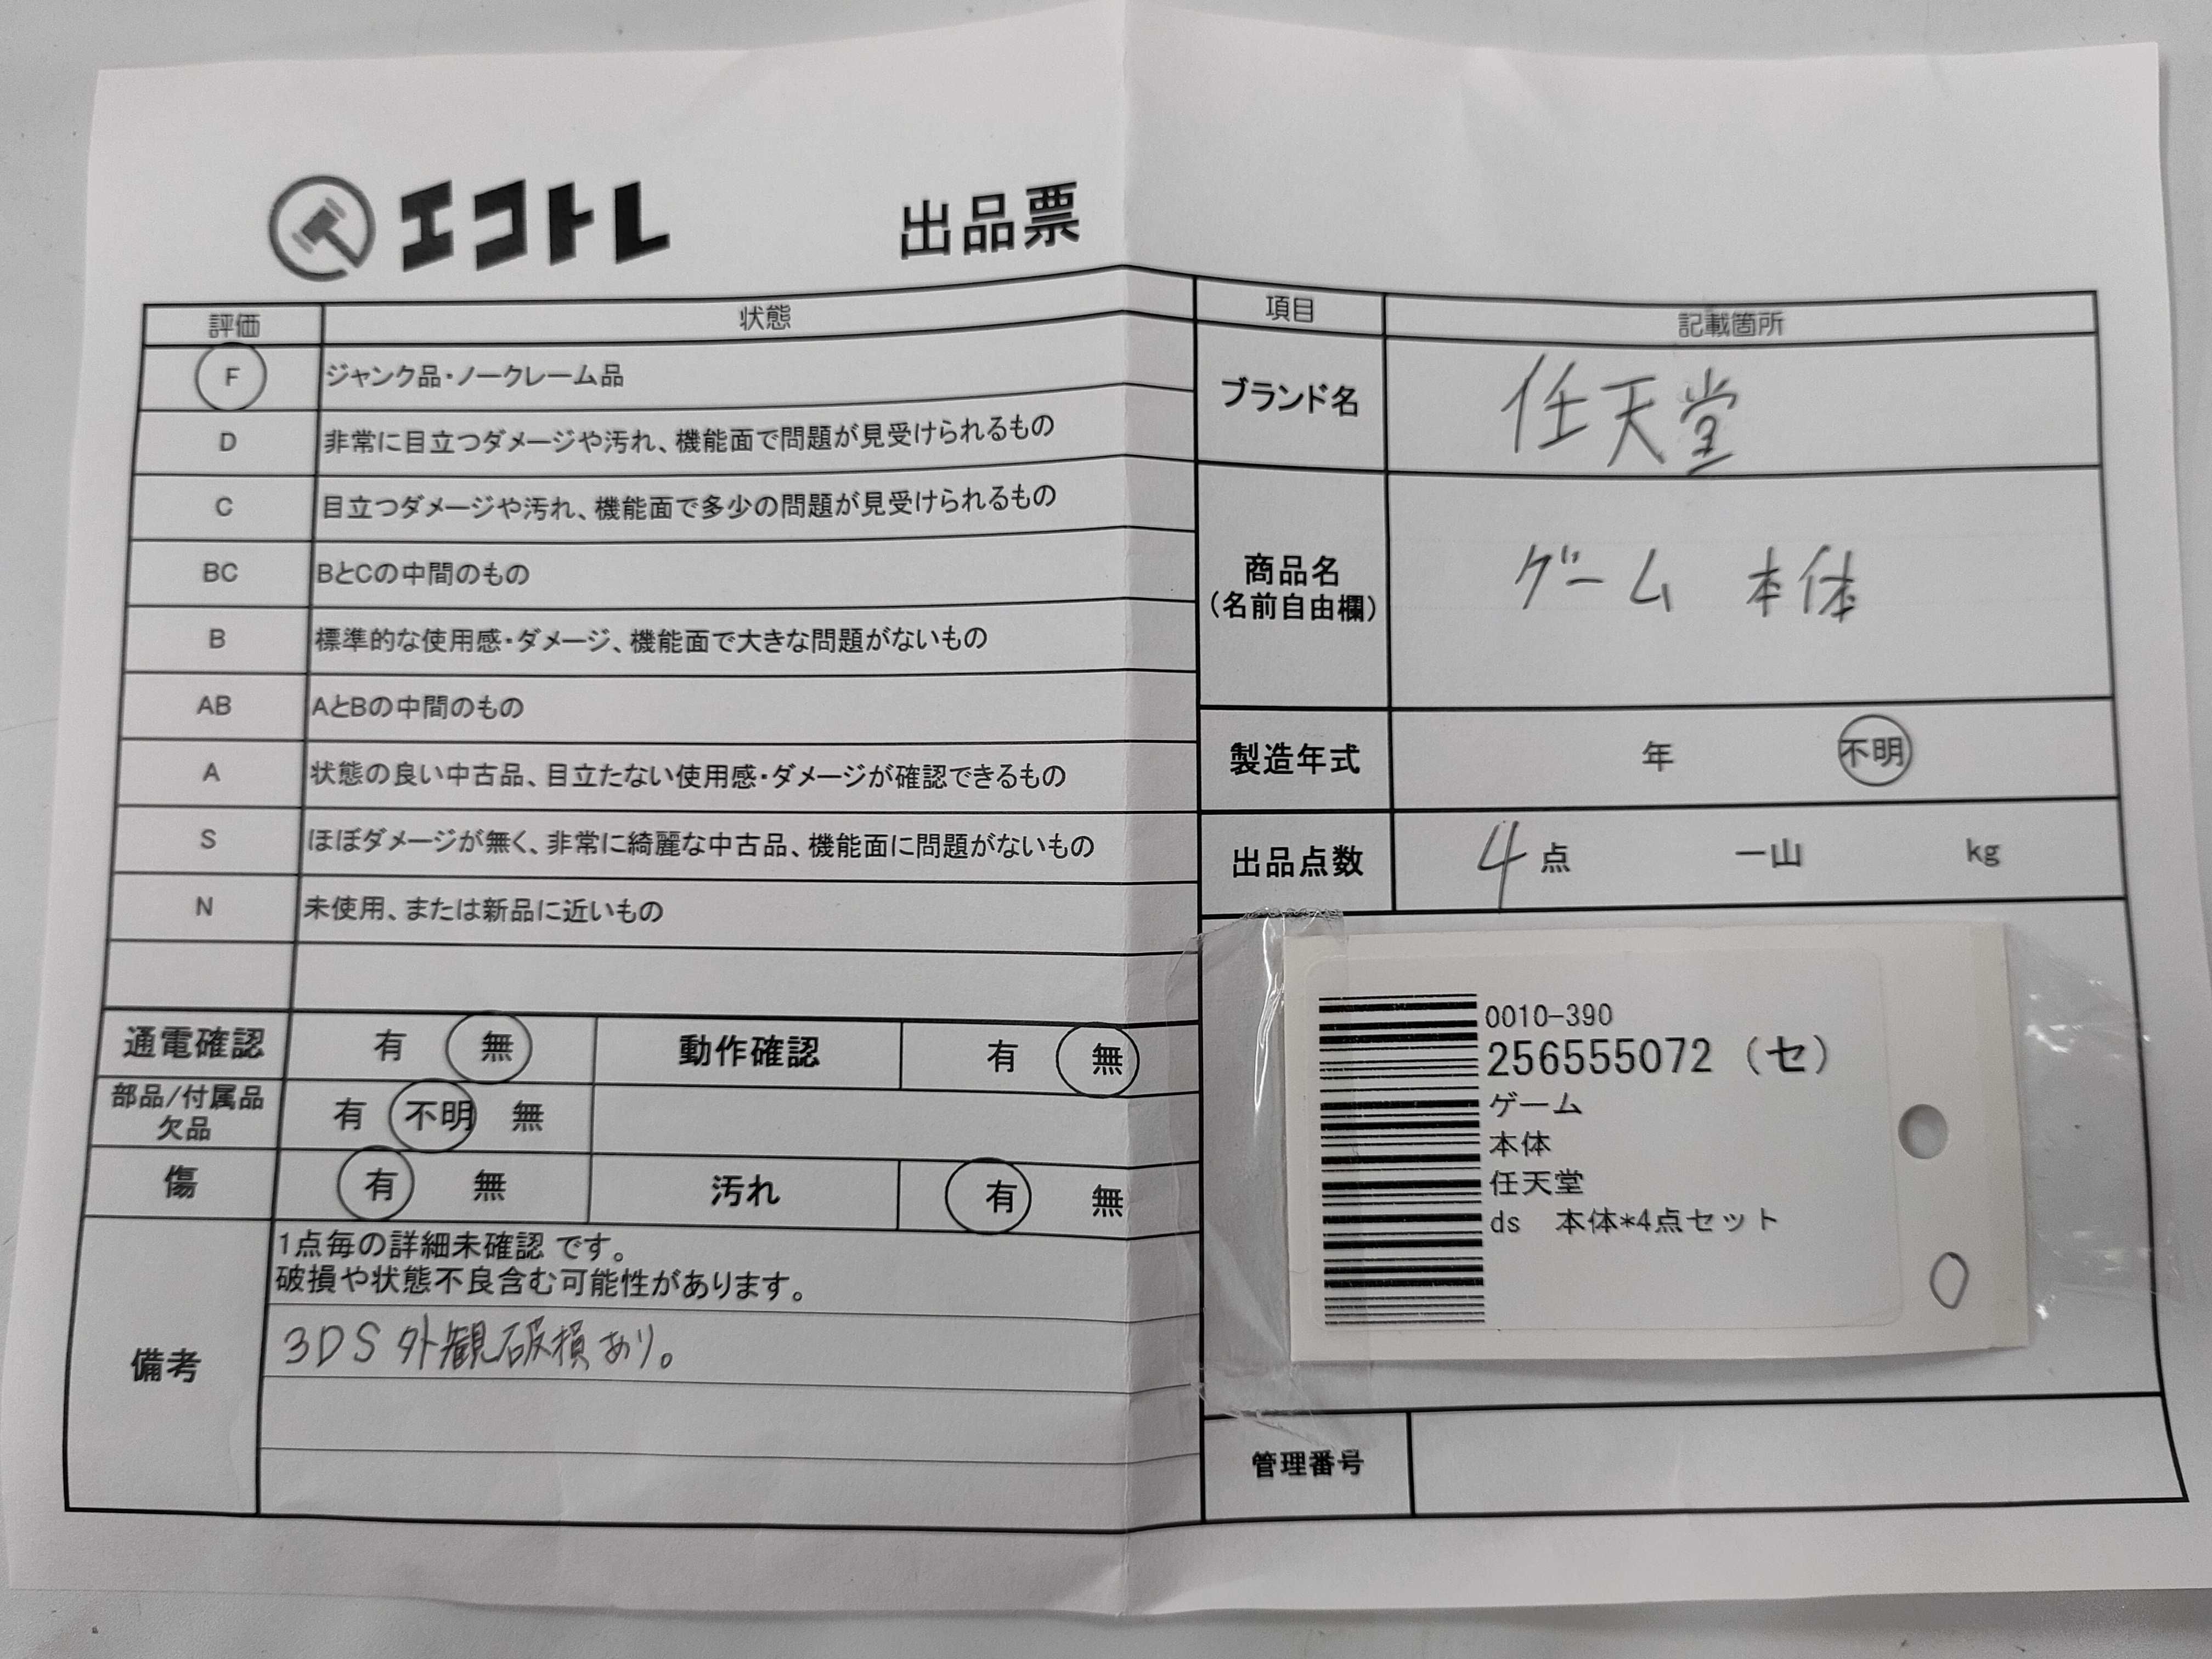 エコトレ 出品票
評価 状態
F ジャンク品・ノークレーム品
D 非常に目立つダメージや汚れ、機能面で問題が見受けられるもの
C 目立つダメージや汚れ、機能面で多少の問題が見受けられるもの
BC BとCの中間のもの
B 標準的な使用感・ダメージ、機能面で大きな問題がないもの
AB AとBの中間のもの
A 状態の良い中古品、目立たない使用感・ダメージが確認できるもの
S ほぼダメージが無く、非常に綺麗な中古品、機能面に問題がないもの
N 未使用、または新品に近いもの
通電確認 有 無 動作確認 有 無
部品/付属品
欠品 有 不明 無
傷 有 無 汚れ 有 無
備考
1点毎の詳細未確認 です。
破損や状態不良含む可能性があります。
3DS 外観破損あり。
項目 記載箇所
ブランド名 任天堂
商品名
(名前自由欄) ゲーム 本体
製造年式 年 不明
出品点数 4 点 一山 kg
0010-390
256555072 (セ)
ゲーム
本体
任天堂
ds 本体*4点セット
管理番号